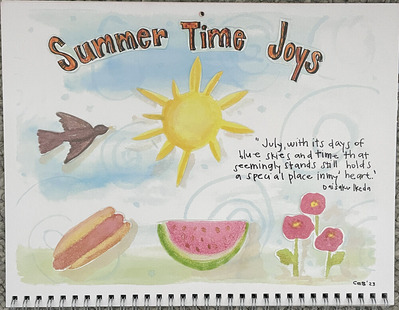 Summer Time Joys
"July, with its days of
blue skies and time that
seemingly stands still holds
a special place in my heart."
Daisaku Ikeda
CMB '23